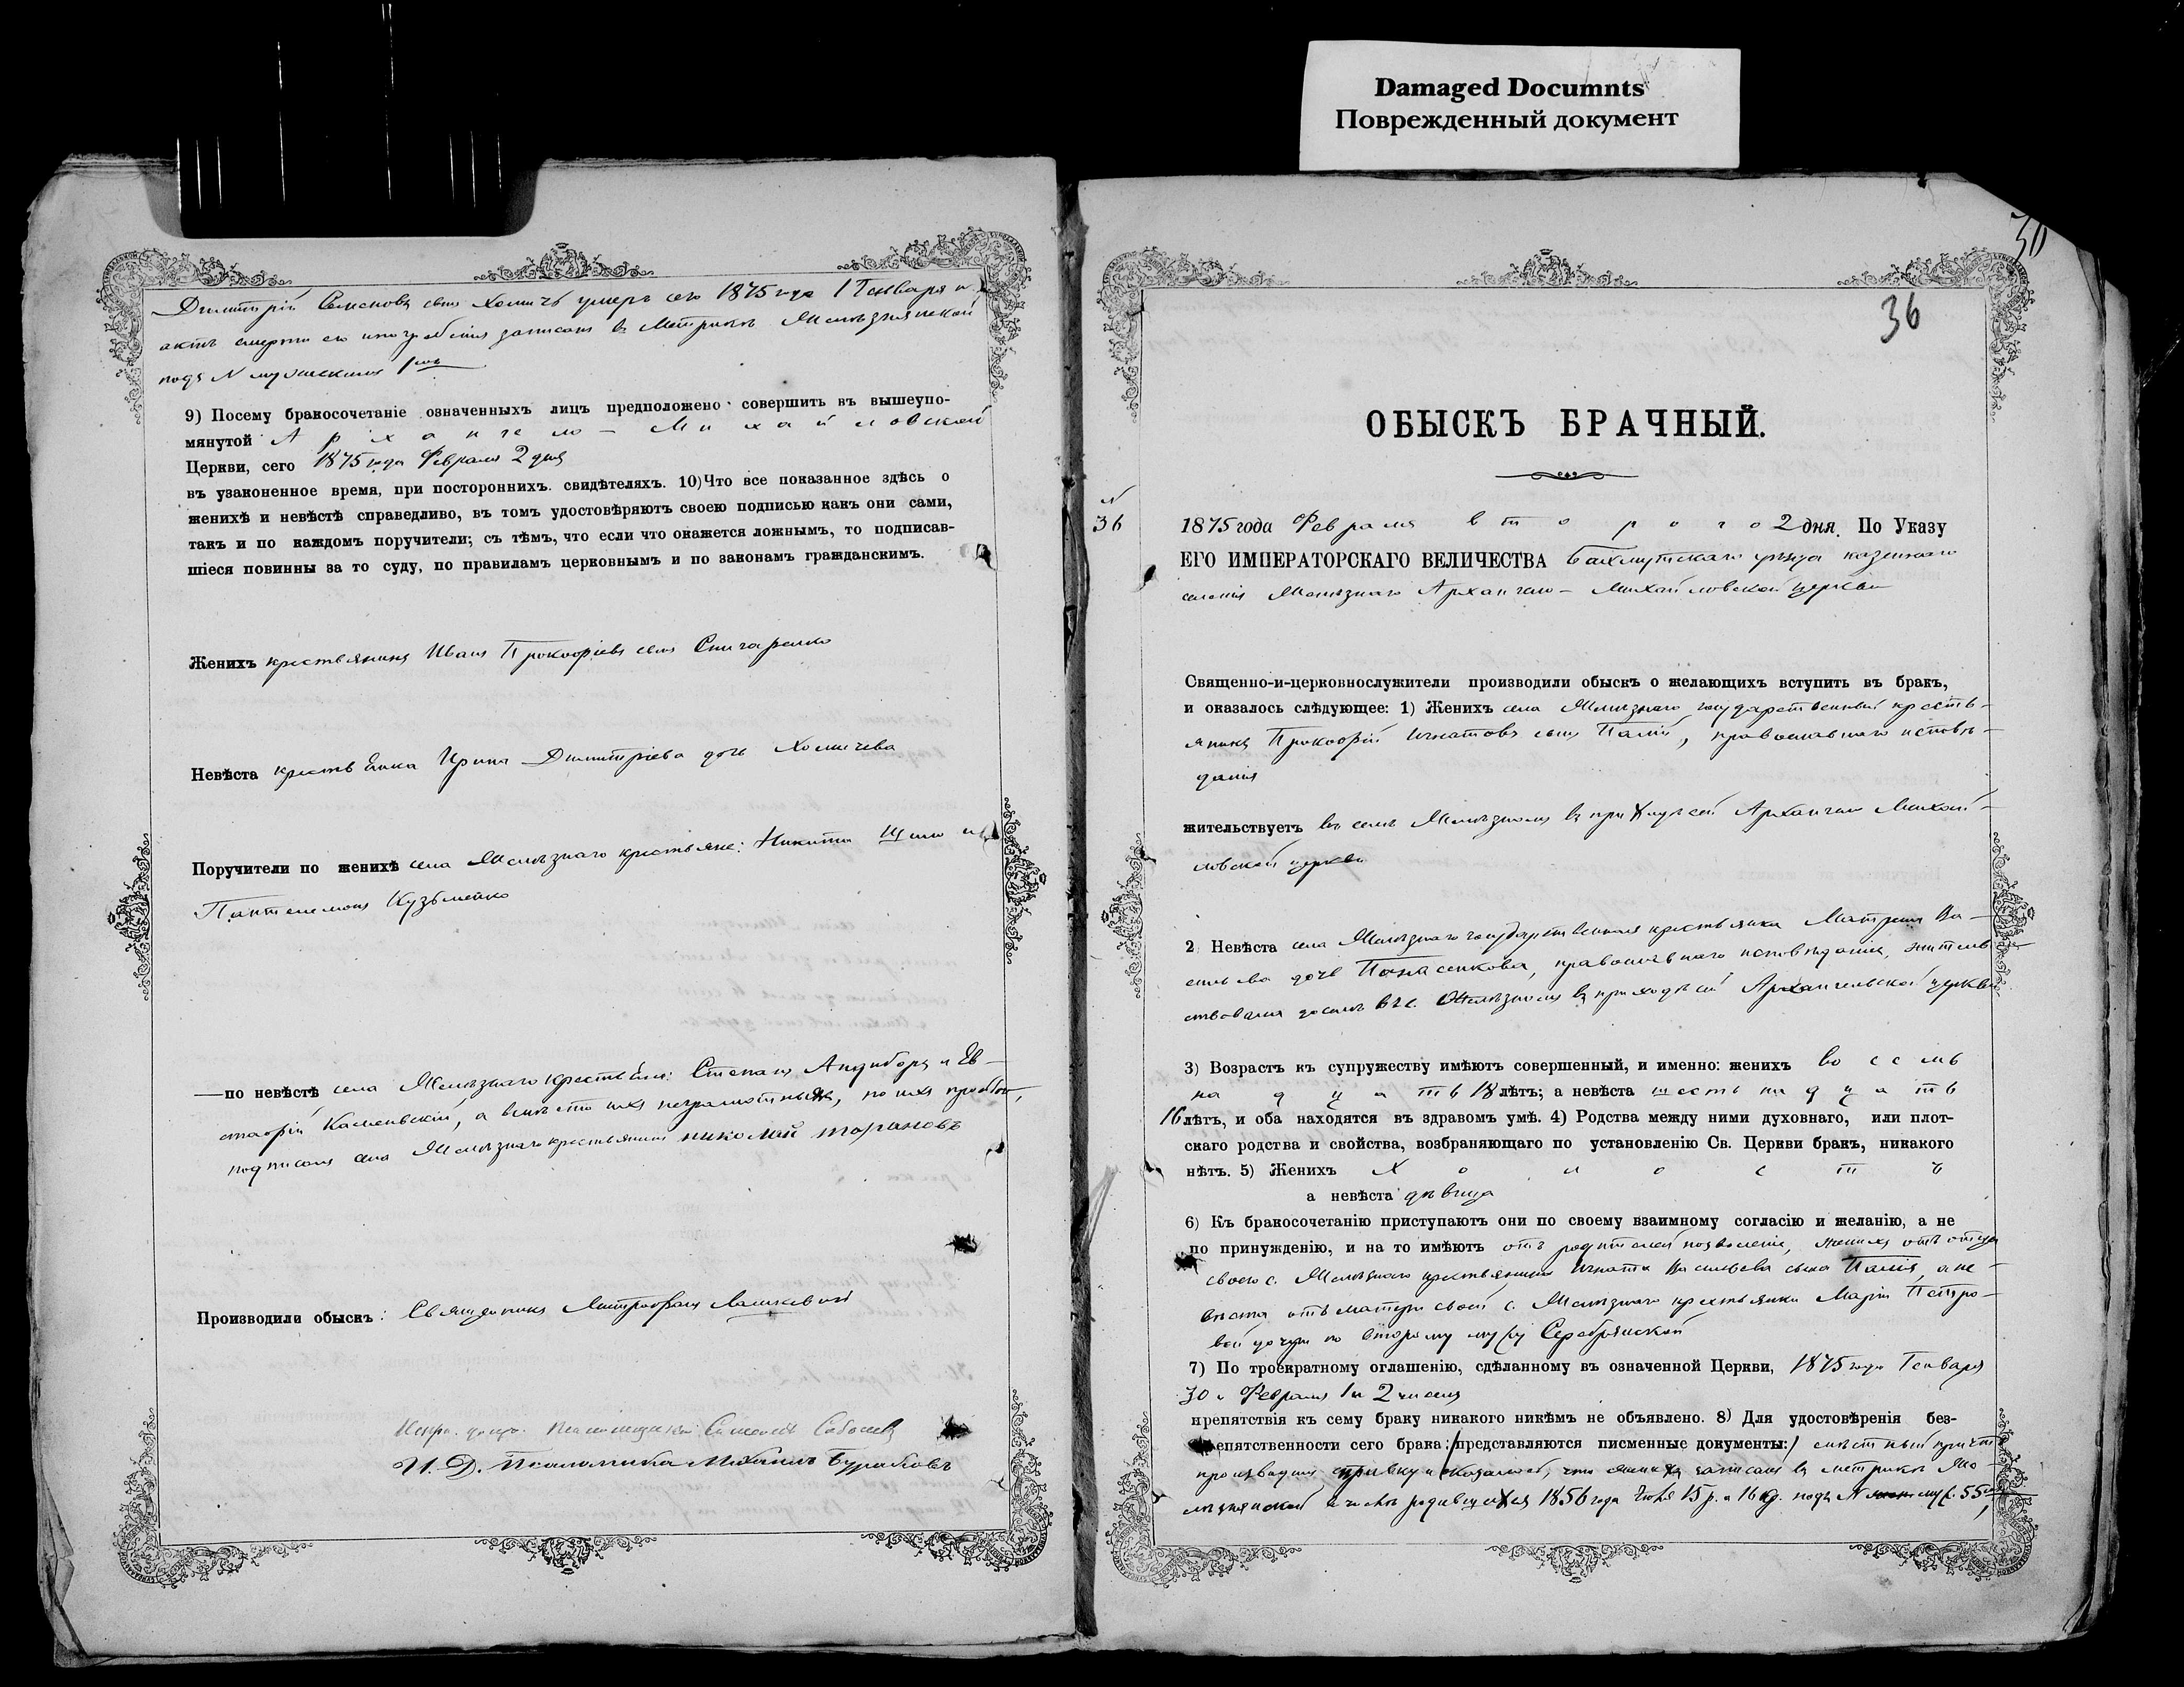 Damaged Documnts
Поврежденный документ
Димитрій Семеновъ сынъ Хомичъ умеръ сего 1875 года 1 Генваря и
актъ смерти его и погребенія записанъ въ Метрикѣ Желѣзнянской
подъ N мужескимъ 1мъ
9) Посему бракосочетаніе означенныхъ лицъ предположено совершить въ вышеупо-
мянутой Архангело-Михайловской
Церкви, сего 1875 года Февраля 2 дня
въ узаконенное время, при постороннихъ свидѣтеляхъ. 10) Что все показанное здѣсь о
женихѣ и невѣстѣ справедливо, въ томъ удостовѣряютъ своею подписью какъ они сами,
такъ и по каждомъ поручители; съ тѣмъ, что если что окажется ложнымъ, то подписав-
шіеся повинны за то суду, по правиламъ церковнымъ и по законамъ гражданскимъ.
Женихъ крестьянинъ Иванъ Прокофіевъ сынъ Снигаренко
Невѣста крестьянка Ирина Димитріева дочь Хомичева
Поручители по женихѣ села Желѣзнаго крестьяне: Никита
Пантелемонъ Кузьменко
—по невѣстѣ села Желѣзнаго крестьяне: Степанъ Андибора и Ев-
стафій Каменскій, а вмѣсто ихъ неграмотныхъ, по ихъ прозьбѣ,
подписалъ села Желѣзнаго крестьянинъ николай тарановъ
Производили обыскъ: Священникъ Митрофанъ
Испр. должн. Псаломщика Симеонъ Соболевъ
И. Д. Псаломщика Михаилъ Бураковъ
30
36
ОБЫСКЪ БРАЧНЫЙ.
N
36
1875 года Февраля второго 2 дня. По Указу
ЕГО ИМПЕРАТОРСКАГО ВЕЛИЧЕСТВА Бахмутскаго уѣзда казеннаго
селенія Желѣзнаго Архангело-Михайловской церкви
Священно-и-церковнослужители производили обыскъ о желающихъ вступить въ бракъ,
и оказалось слѣдующее: 1) Женихъ села Желѣзнаго государственный кресть-
янинъ Прокофій Игнатовъ сынъ Палій, православнаго исповѣ-
данія
жительствуетъ въ селѣ Желѣзномъ въ приходѣ сей Архангело Михай-
ловской церкви
2 Невѣста села Желѣзнаго государственная крестьянка Матрена Ва-
сильева дочь Панасенкова, православнаго исповѣданія, житель-
ствовала доселѣ въ с. Желѣзномъ въ приходѣ сей Архангельской церкви
3) Возрастъ къ супружеству имѣютъ совершенный, и именно: женихъ восемь
надцать 18 лѣтъ; а невѣста шестьнадцать
16 лѣтъ, и оба находятся въ здравомъ умѣ. 4) Родства между ними духовнаго, или плот-
скаго родства и свойства, возбраняющаго по установленію Св. Церкви бракъ, никакого
нѣтъ. 5) Женихъ Холостъ
а невѣста дѣвица
6) Къ бракосочетанію приступаютъ они по своему взаимному согласію и желанію, а не
по принужденію, и на то имѣютъ отъ родителей позволеніе, женихъ отъ отца
своего с. Желѣзнаго крестьянина Игната Васильева сына Палія, а не-
вѣста отъ матери своей с. Желѣзнаго крестьянки Маріи Петро-
вой дочери по второму мужу Серебрянской
7) По троекратному оглашенію, сдѣланному въ означенной Церкви, 1875 года Генваря
30 и Февраля 1 и 2 чиселъ
препятствія къ сему браку никакого никѣмъ не объявлено. 8) Для удостовѣренія без-
епятственности сего брака:/представляются писменные документы:/ мѣстный причтъ
производилъ справку и оказалось, что женихъ записанъ въ метрикѣ Же-
лѣзнянской въ числѣ родившихся 1856 года Іюля 15 р. и 16 кр. подъ N муж. 55